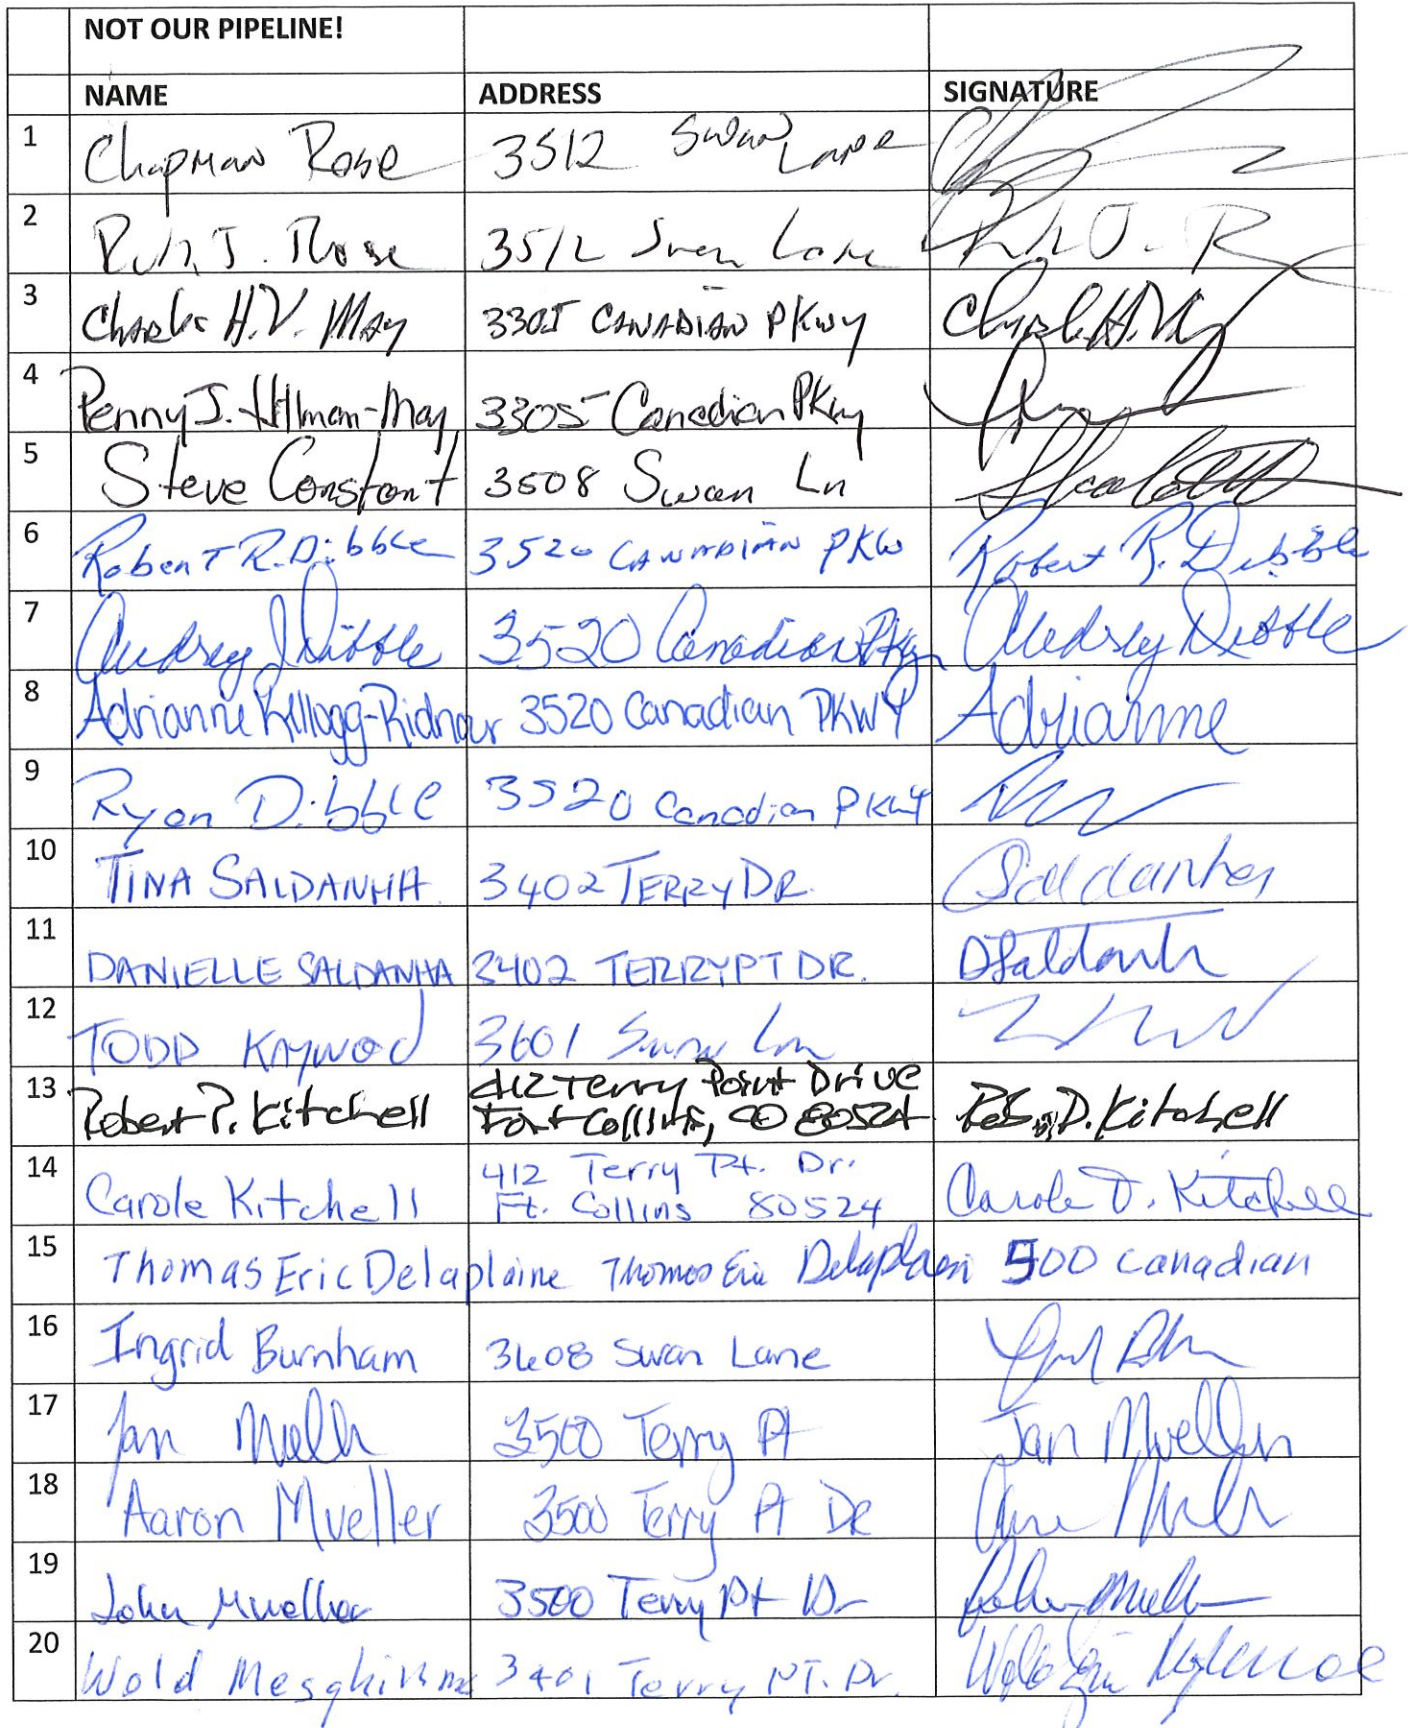 NOT OUR PIPELINE!
NAME ADDRESS SIGNATURE
1 Chapman Rose 3512 Swan Lane
2 Ruth J. Rose 3512 Swan Lane
3 Charles H.V. May 3305 CANADIAN PKwy
4 Penny J. Hillman-May 3305 Canadian PKwy
5 Steve Constant 3508 Swan Ln
6 Robert R. Dibble 3520 CANADIAN PKW Robert R. Dibble
7 Audrey J Dibble 3520 Canadian Pkwy Audrey Dibble
8 Adrianne Kellogg-Ridnour 3520 Canadian PKWY Adrianne
9 Ryan Dibble 3520 Canadian PKWY
10 TINA SALDANHA 3402 TERRY DR. Saldanha
11 DANIELLE SALDANHA 3402 TERRY PT DR. DSaldanha
12 TODD 3601 Swan Ln
13 Robert P. Kitchell 412 Terry Point Drive
Fort Collins, CO 80524 Rob D. Kitchell
14 Carole Kitchell 412 Terry Pt. Dr.
Ft. Collins 80524 Carole D. Kitchell
15 Thomas Eric Delaplaine Thomas Eric Delaplain 500 canadian
16 Ingrid Burnham 3608 Swan Lane
17 Jan 3500 Terry Pt Jan Mueller
18 Aaron Mueller 3500 Terry Pt DR
19 John Mueller 3500 Terry Pt Dr
20 Wold 3401 Terry PT. Dr.